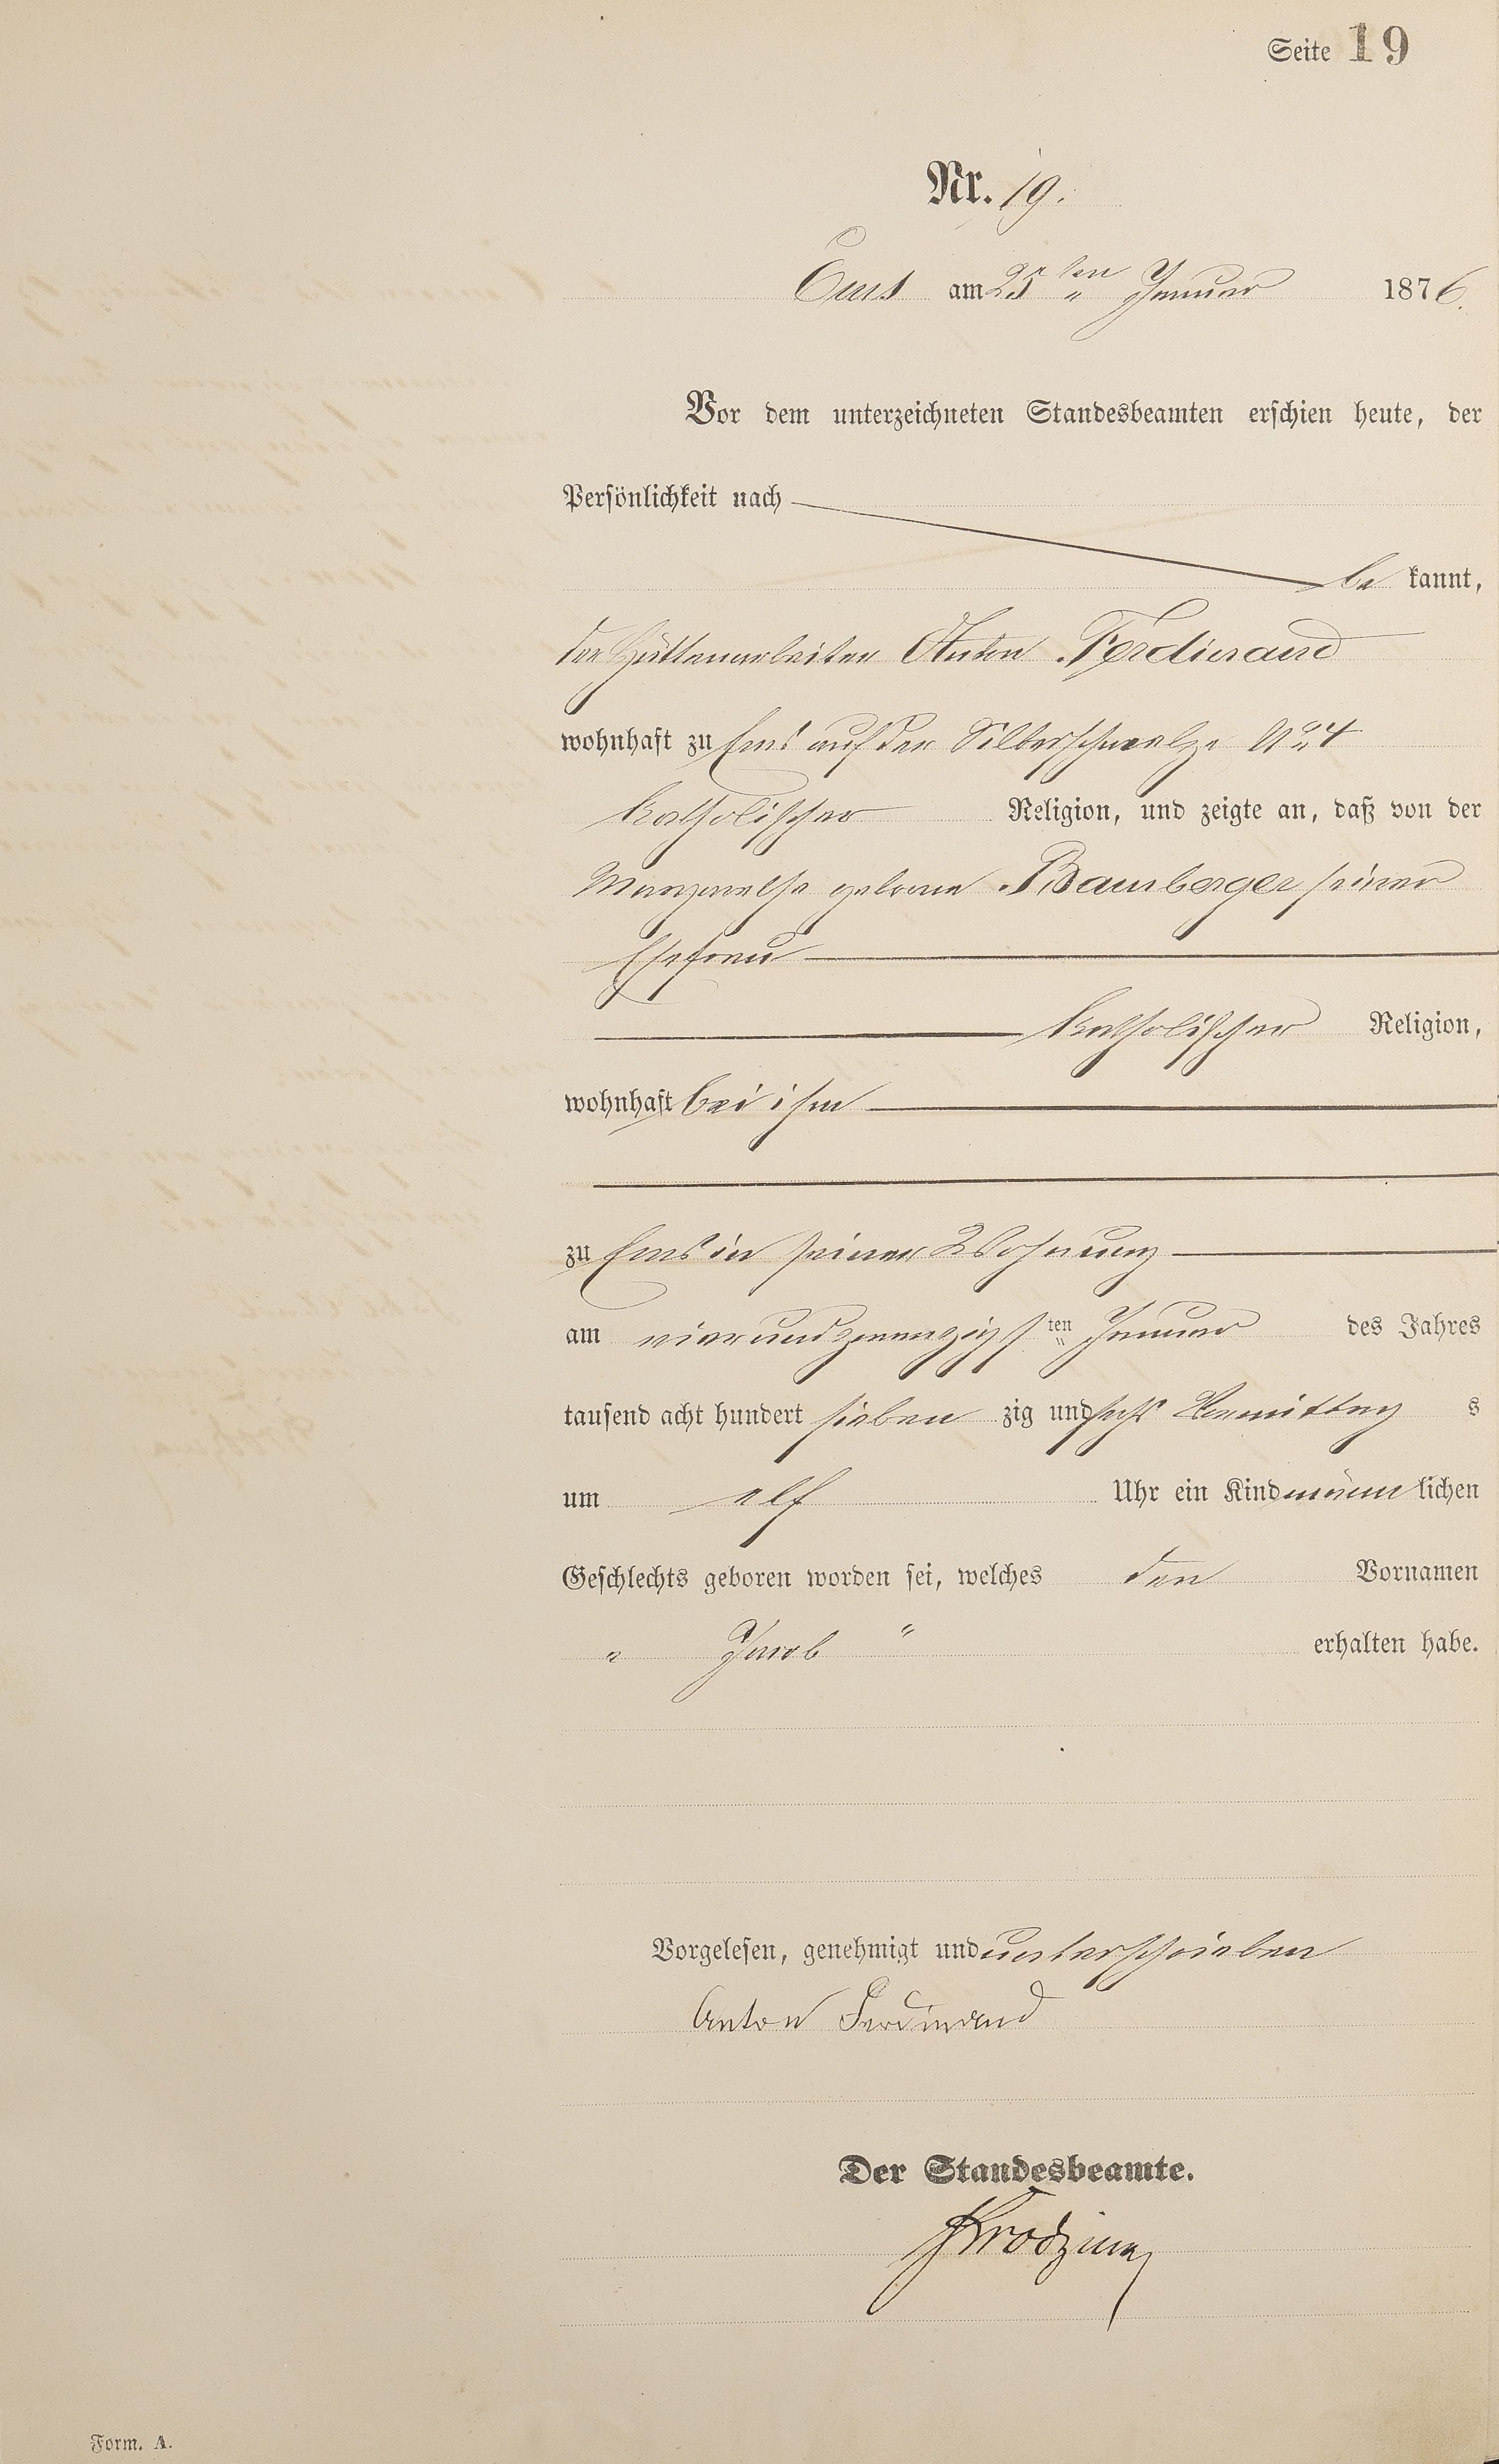 Seite 19
Nr. 19.
Ems am 25 ten " Januar 1876.
Vor dem unterzeichneten Standesbeamten erschien heute, der
Persönlichkeit nach
be kannt,
der Hüttenarbeiter Anton Ferdinand
wohnhaft zu Ems auf der Silberschmelze No 4
katholischer Religion, und zeigte an, daß von der
Margarethe geborne Bamberger seiner
Ehefrau
katholischer Religion,
wohnhaft bei ihm
zu Ems in seiner Wohnung
am vierundzwanzigsten Januar des Jahres
tausend acht hundert sieben zig und sechs Vormittag s
um elf Uhr ein Kind männ lichen
Geschlechts geboren worden sei, welches den Vornamen
" Jacob " erhalten habe.
Vorgelesen, genehmigt und unterschrieben
Anton Ferdinand
Der Standesbeamte.
Form. A.